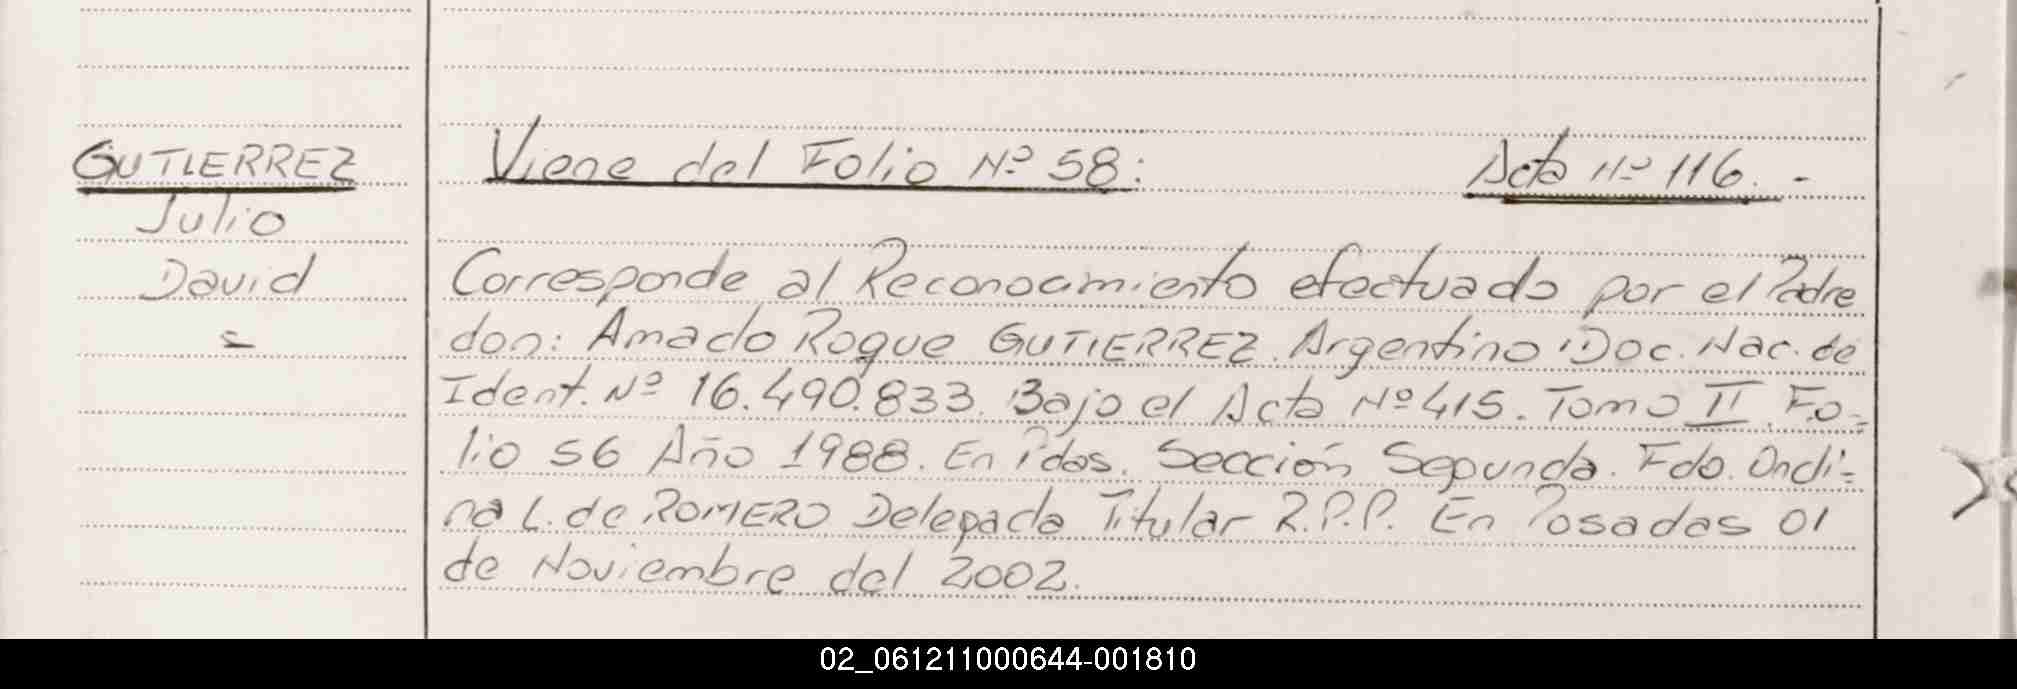 GUTIERREZ
Julio
David
Viene del Folio Nº 58:
Acta Nº 116. -
Corresponde al Reconocimiento efectuado por el Padre
don: Amado Roque GUTIERREZ. Argentino Doc. Nac. de
Ident. Nº 16.490.833. Bajo el Acta Nº 415. Tomo II. Fo=
lio 56 Año 1988. En Pdas. Sección Segunda. Fdo. Ondi=
na L. de ROMERO Delegada Titular R.P.P. En Posadas 01
de Noviembre del 2002.
02_061211000644-001810